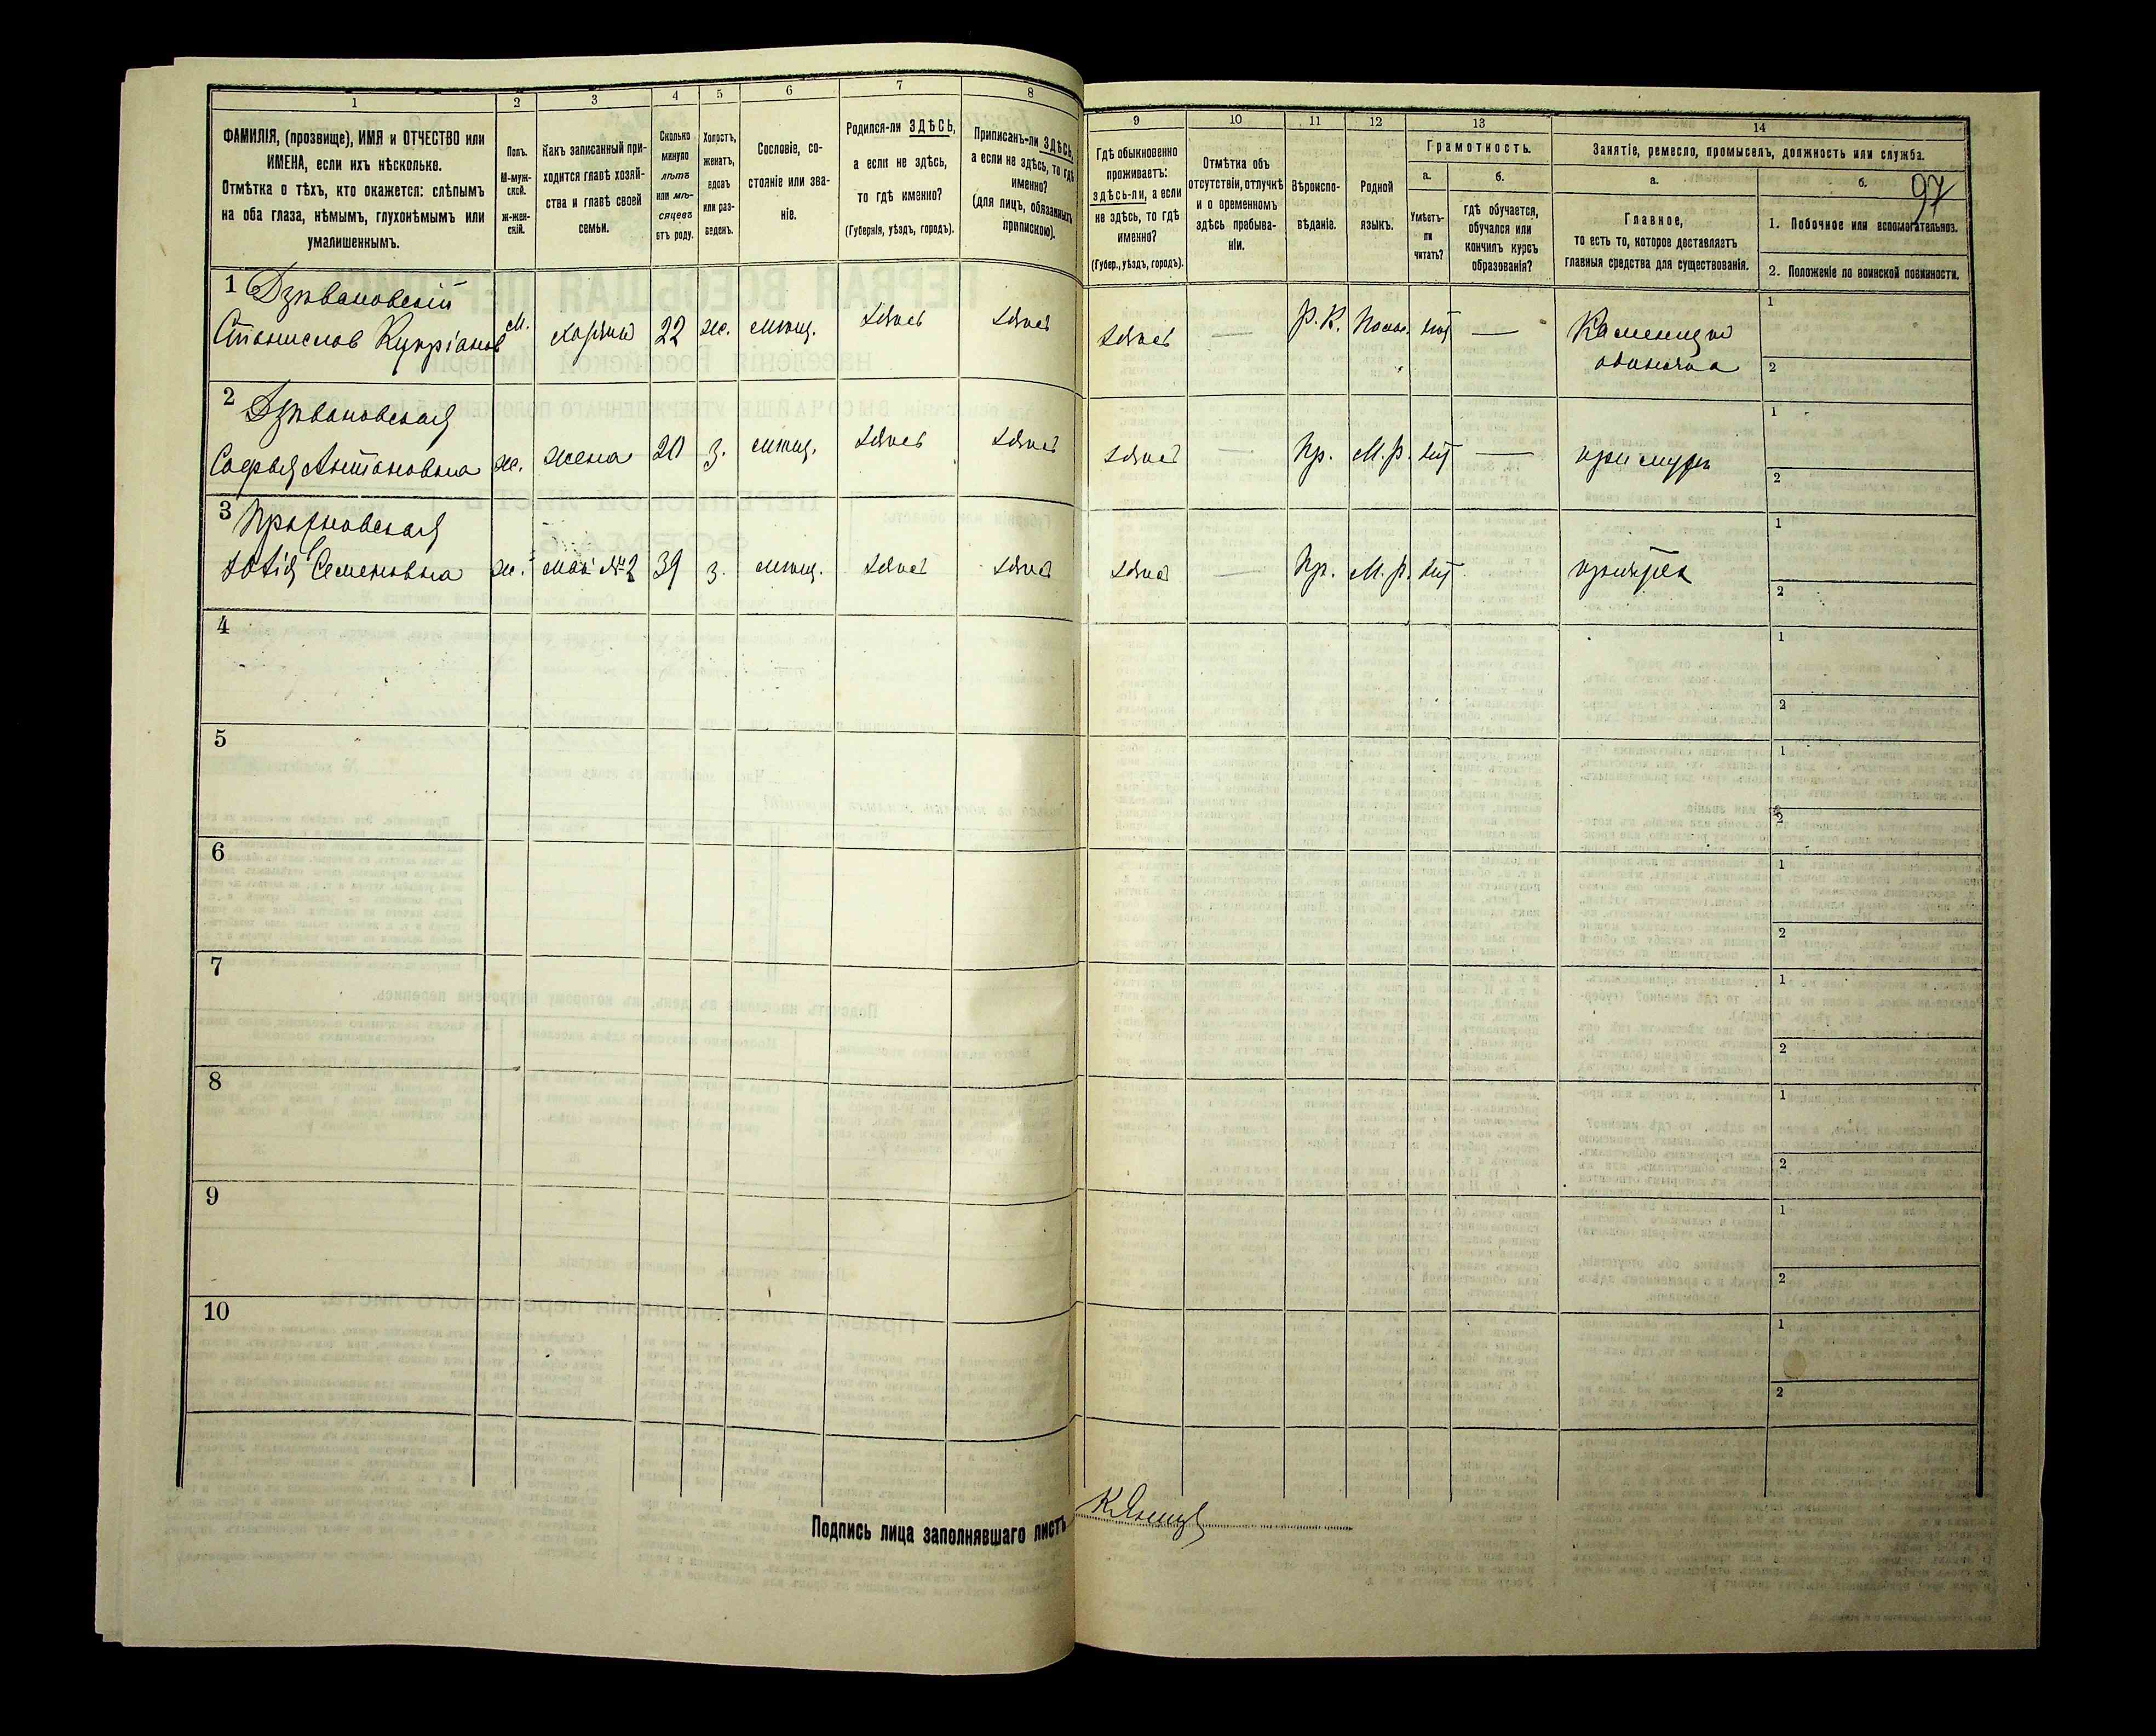 1
2
3
4
5
6
7
8
ФАМИЛІЯ, (прозвище), ИМЯ и ОТЧЕСТВО или
ИМЕНА, если ихъ нѣсколько.
Отмѣтка о тѣхъ, кто окажется: слѣпымъ
на оба глаза, нѣмымъ, глухонѣмымъ или
умалишеннымъ.
Полъ.
М-муж-
ской.
Ж-жен-
скій.
Какъ записанный при-
ходится главѣ хозяй-
ства и главѣ своей
семьи.
Сколько
минуло
лѣтъ
или мѣ-
сяцевъ
отъ роду.
Холостъ,
женатъ,
вдовъ
или раз-
веденъ.
Сословіе, со-
стояніе или зва-
ніе.
Родился-ли ЗДѢСЬ,
а если не здѣсь,
то гдѣ именно?
(Губернія, уѣздъ, городъ).
Приписанъ-ли ЗДѢСЬ,
а если не здѣсь, то гдѣ
именно?
(для лицъ, обязанныхъ
припискою).
9
10
11
12
13
14
Гдѣ обыкновенно
проживаетъ:
здѣсь-ли, а если
не здѣсь, то гдѣ
именно?
(Губер., уѣздъ, городъ).
Отмѣтка объ
отсутствіи, отлучкѣ
и о временномъ
здѣсь пребыва-
ніи.
Вѣроиспо-
вѣданіе.
Родной
языкъ.
Грамотность.
а.
Умѣетъ-
ли
читать?
б.
гдѣ обучается,
обучался или
кончилъ курсъ
образованія?
Занятіе, ремесло, промыселъ, должность или служба.
а.
Главное,
то есть то, которое доставляетъ
главныя средства для существованія.
б.
97
1. Побочное или вспомогательное.
2. Положеніе по воинской повинности.
1
Станислав Купріанов м. 22 ж. мѣщ. здѣсь здѣсь здѣсь — Р.К. Польс. — 1
2
2
Софья Антоновна ж. жена 20 з. мѣщ. здѣсь здѣсь здѣсь — Пр. М.Р. — при мужѣ 1
2
3
Семеновна ж. №2 39 з. мѣщ. здѣсь здѣсь здѣсь — Пр. М.Р. 1
2
4 1
2
5 1
2
6 1
2
7 1
2
8 1
2
9 1
2
10 1
2
Подпись лица заполнявшаго листъ